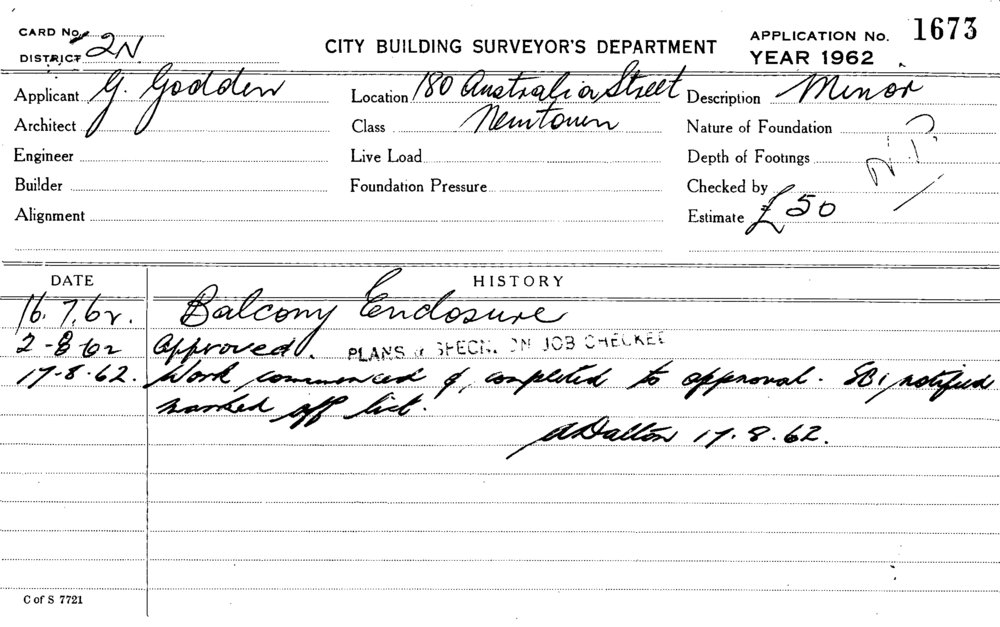 CARD No.
DISTRICT 2N
CITY BUILDING SURVEYOR'S DEPARTMENT
APPLICATION No. 1673
YEAR 1962
Applicant G. Godden
Location 180 Australia Street
Description Minor
Architect
Class Newtown
Nature of Foundation
Engineer
Live Load
Depth of Footings
Builder
Foundation Pressure
Checked by
Alignment
Estimate £50
DATE
HISTORY
16.7.62. Balcony Enclosure
2-8-62 Approved. PLANS & SPECN. ON JOB CHECKED
17.8.62. Work commenced & completed to approval. SBI notified
marked off list.
A Dalton 17.8.62.
C of S 7721